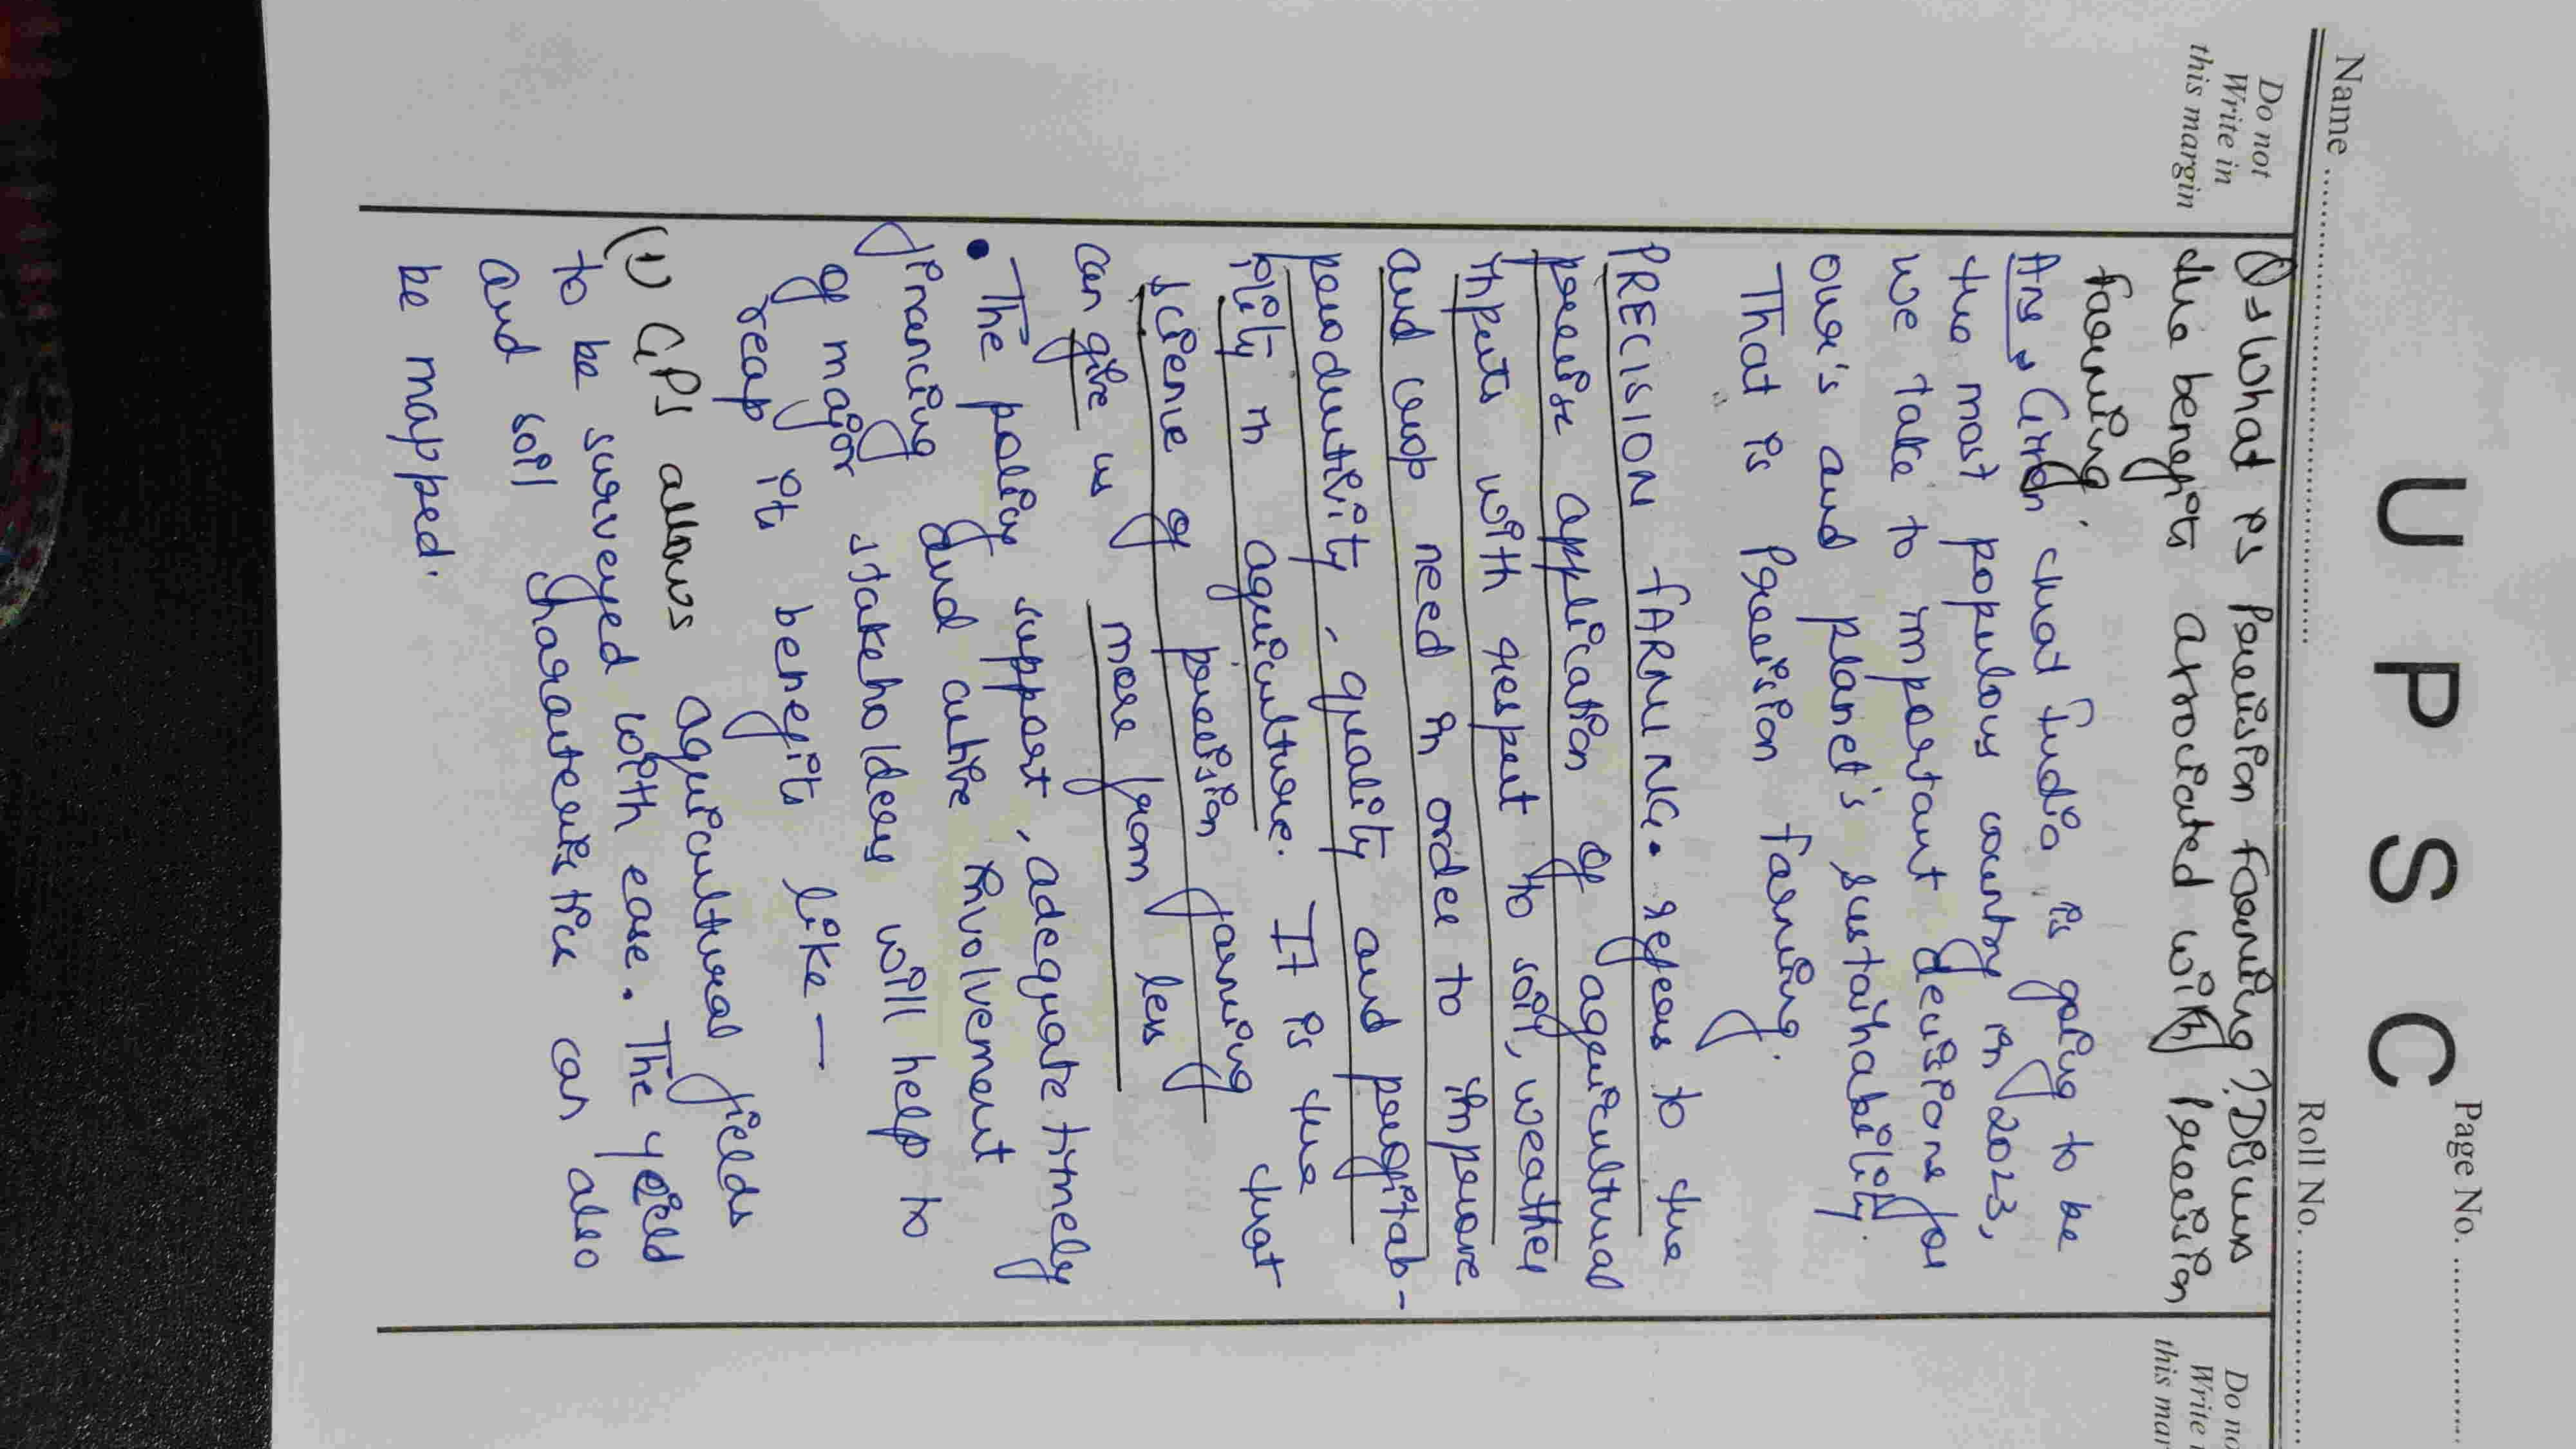 UPSC
Page No. ....................
Name ....................
Roll No. ....................
Do not
Write in
this margin
Do no
Write
this mar
Q→ What is Precision Farming? Discuss
the benefits associated with Precision
farming.
Ans → Given that India is going to be
the most populous country in 2023,
we take to important decisions for
our's and planet's sustainability.
That is Precision Farming.
PRECISION FARMING. refers to the
precise application of agricultural
inputs with respect to soil, weather
and crop need in order to improve
productivity, quality and profitab-
ility in agriculture. It is the
science of precision farming that
can give us more from less
• The policy support, adequate timely
financing and active involvement
of major stakeholders will help to
reap its benefits like —
(1) GPS allows agricultural fields
to be surveyed with ease. The yield
and soil characteristics can also
be mapped.